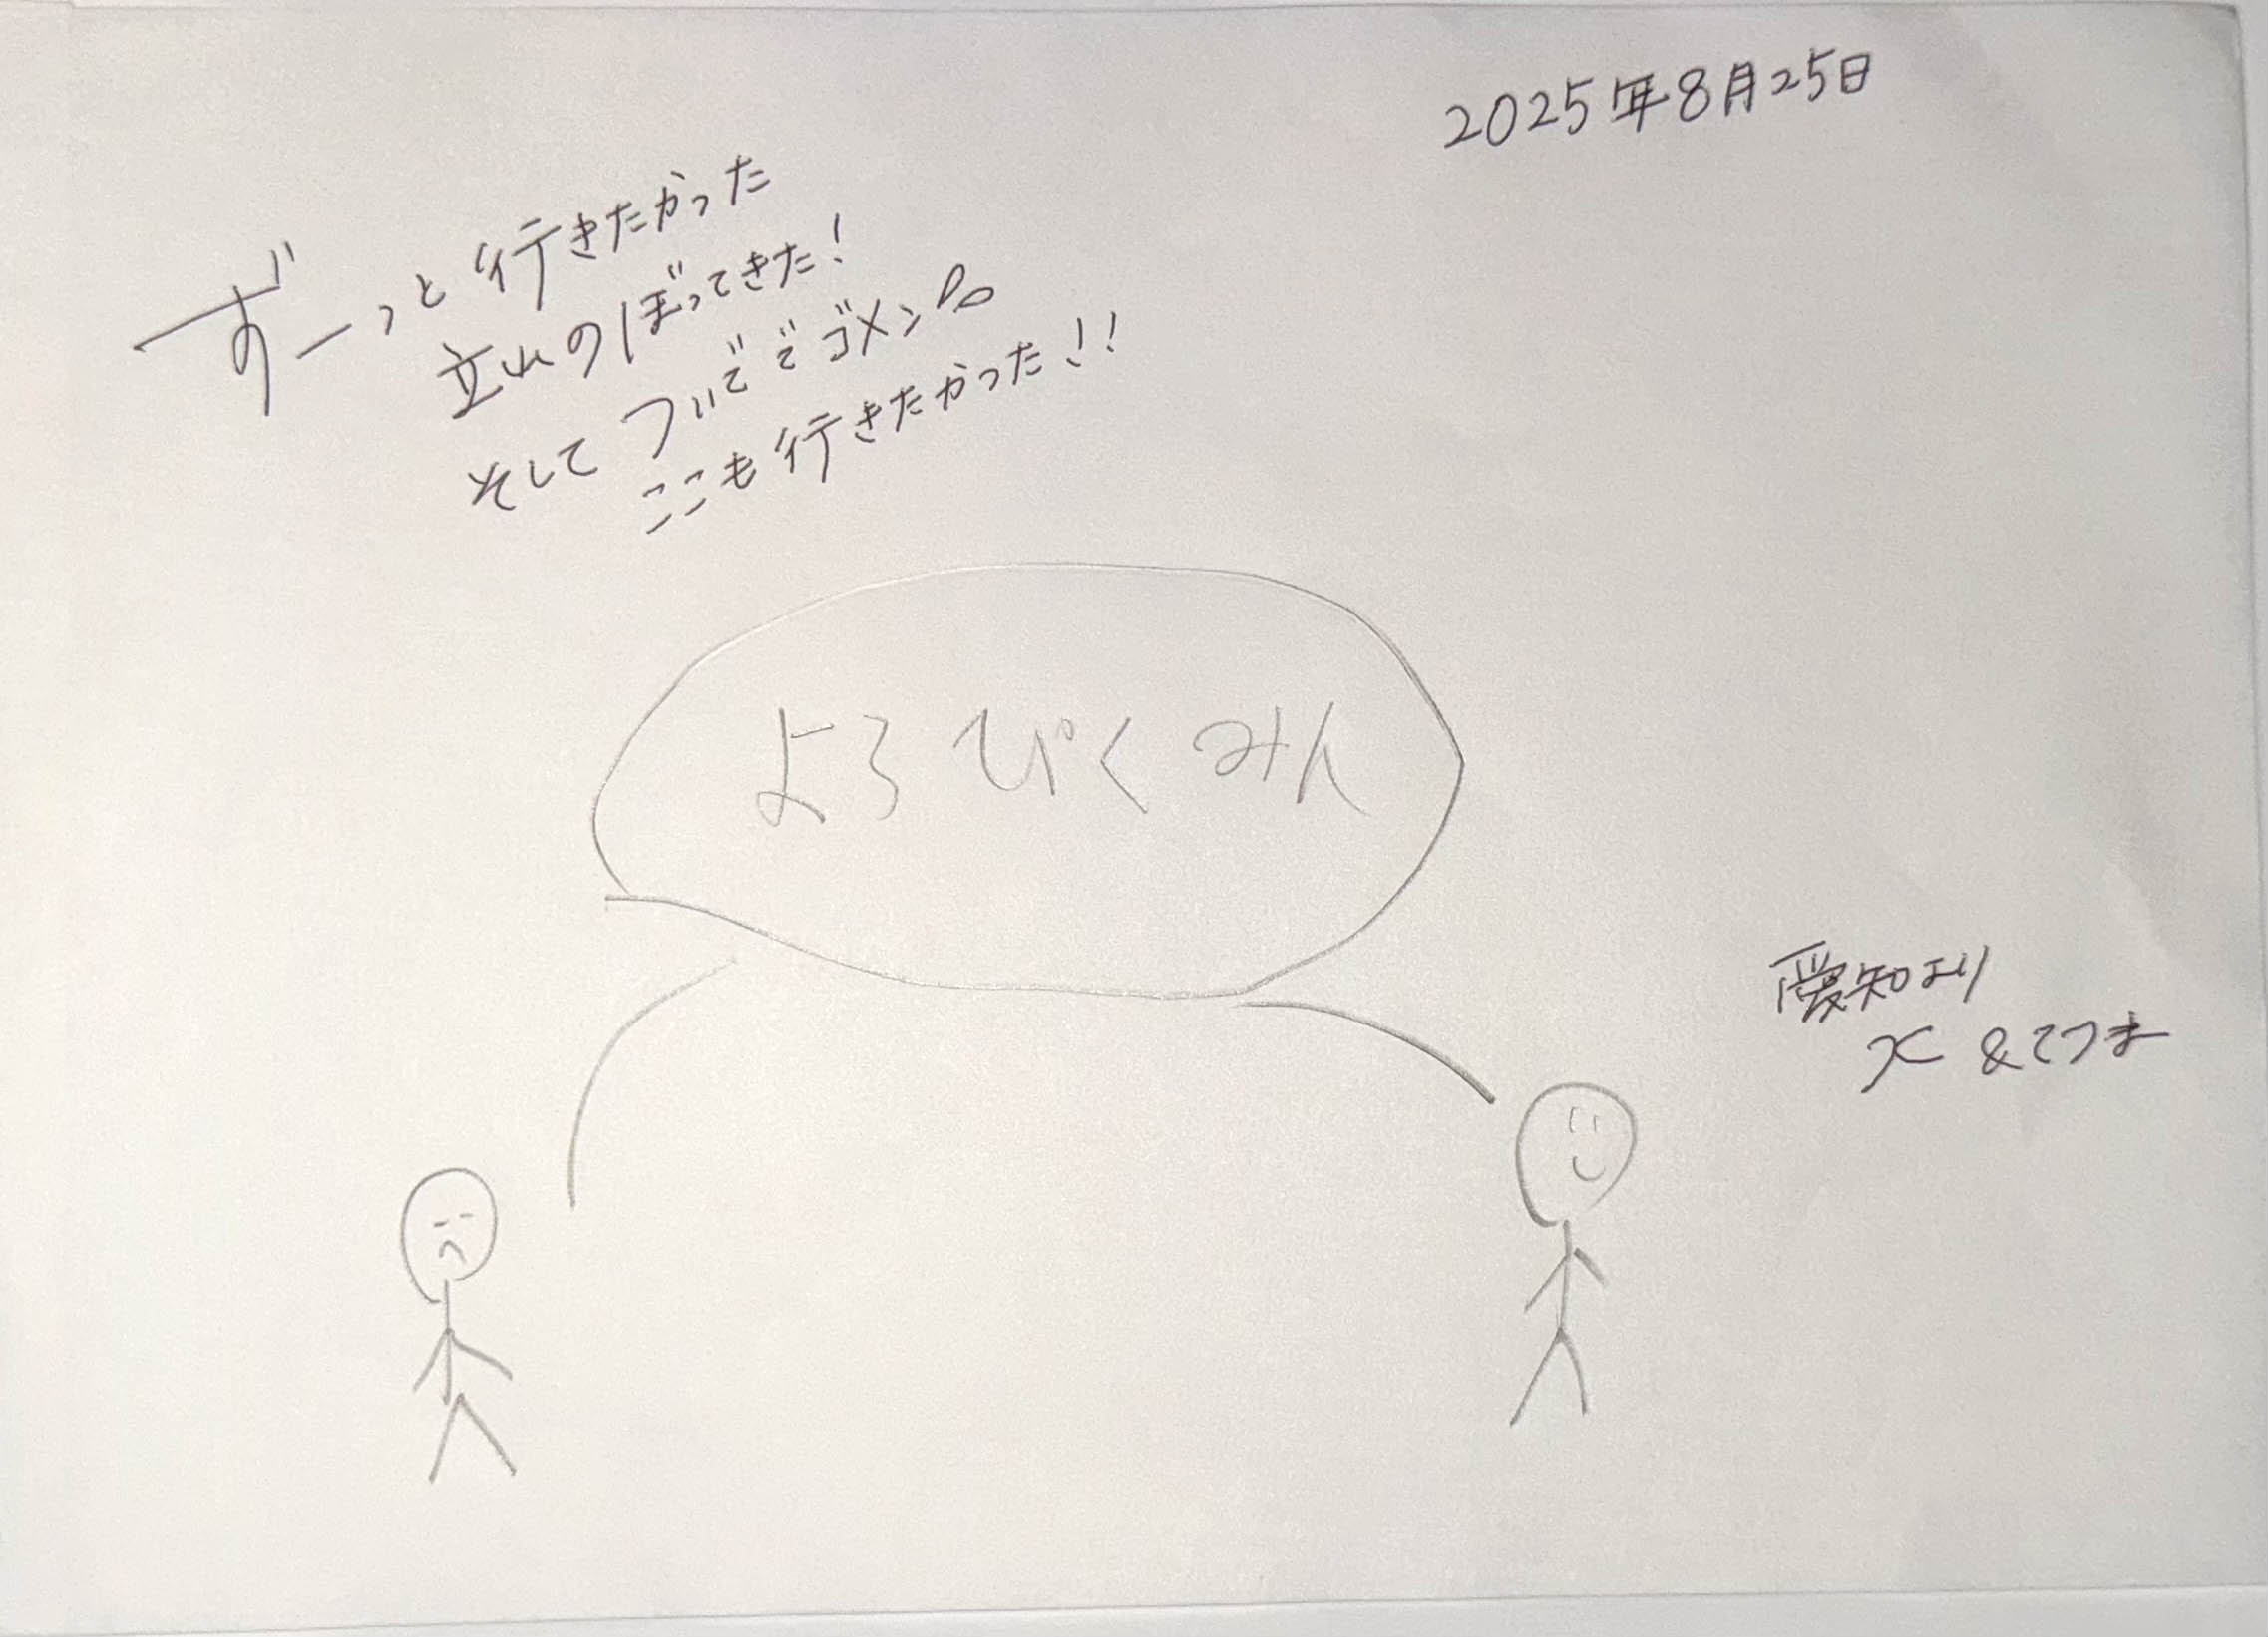 2025年8月25日
ずーっと行きたかった
立山のぼってきた！
そしてついででゴメン
ここも行きたかった！！
よろぴくみん
愛知より
&てつま